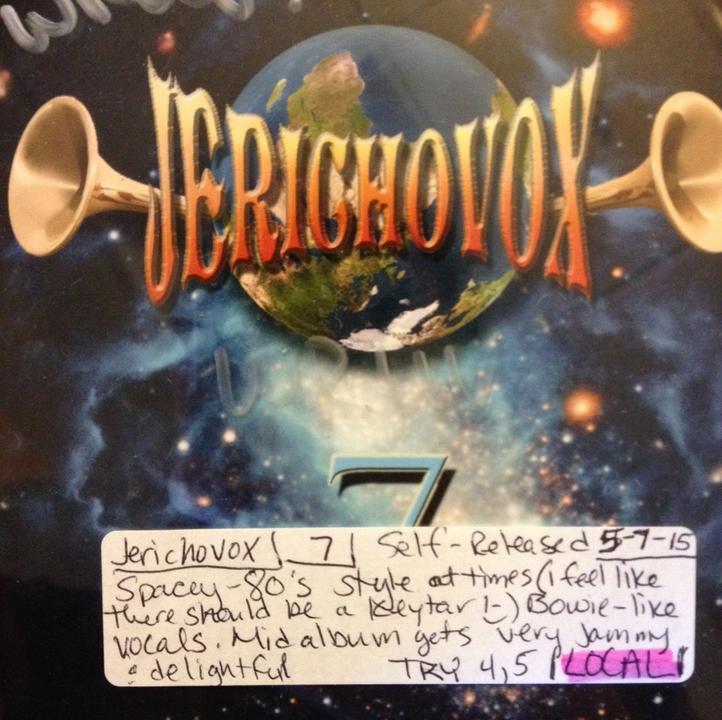 JERICHOVOX
7
Jerichovox | 7 | Self-Released 5-7-15
Spacey-80's style at times (i feel like
there should be a keytar !-) Bowie-like
vocals. Mid album gets very jammy
& delightful TRY 4,5 |LOCAL|